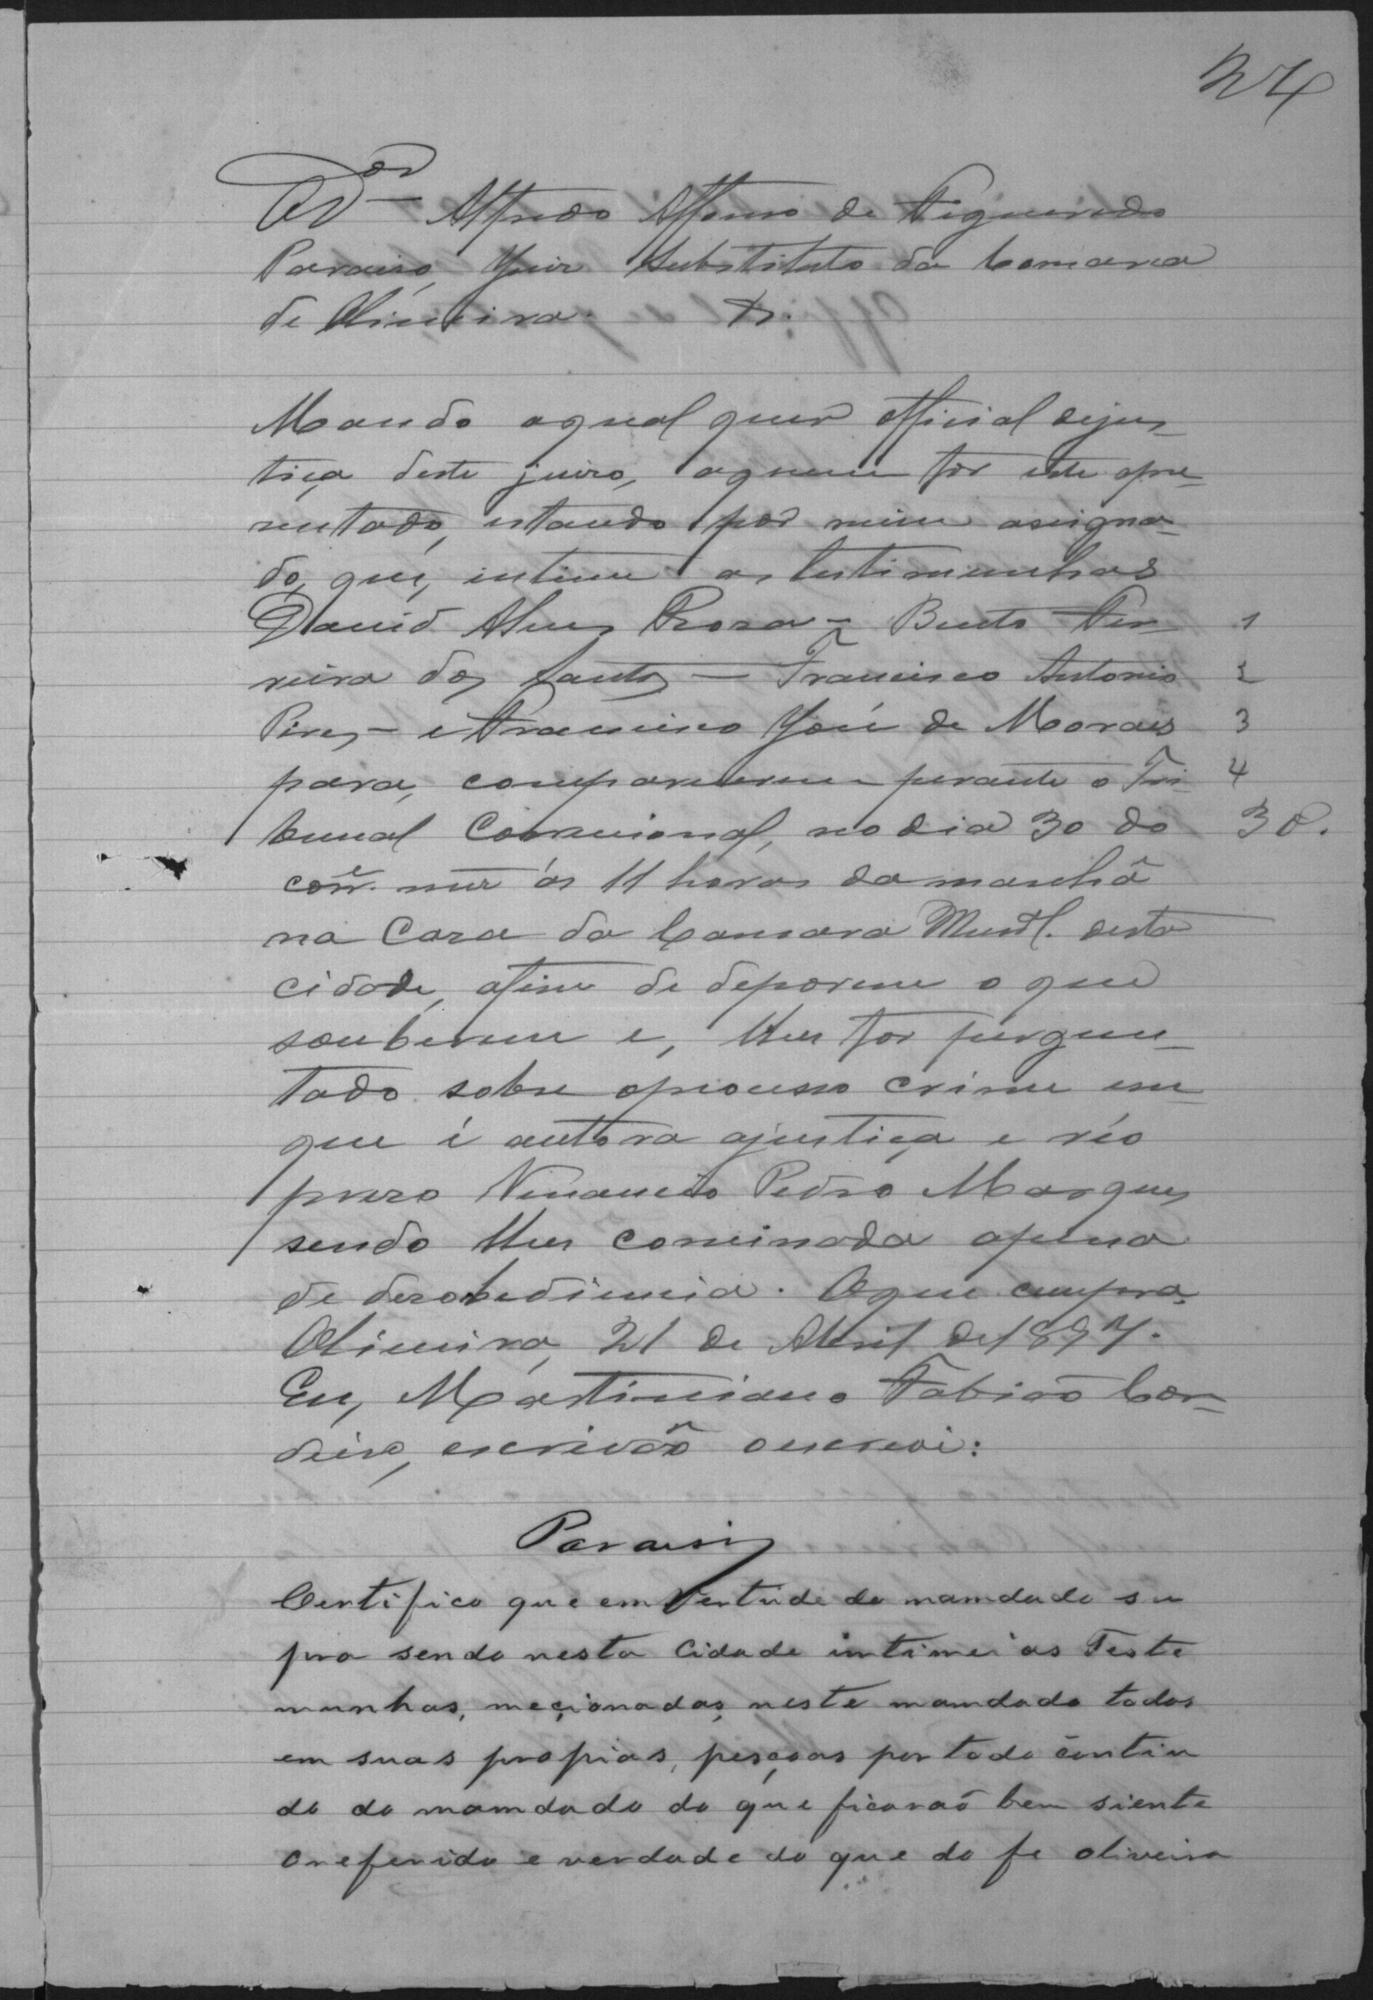 24
O Dor Alfredo Affonso de Figueiredo
Paraiso, Juiz Substituto da Comarca
de Oliveira. &.
Mando aqual quer official dejus-
tiça deste juizo, aquem for este apre-
sentado, estando por mim assigna-
do, que, intime as testimunhas
David Alves Roza - Bento Fer- 1
reira dos Santos - Francisco Antonio 2
Pires - e Francisco José de Moraes 3
para, comparecerem perante o Tri- 4
bunal Correcional, no dia 30 do 30.
corre. mez ás 11 horas da manhã
na Caza da Camara Munal. desta
cidade, afim de deporem o que
souberem e, lhes for pergun-
tado sobre oprocesso crime em
que é autora ajustiça e réo
prezo Venancio Pedro Marques
sendo lhes cominada apena
de dezobediencia. Oque cumpra.
Oliveira, 21 de Abril de 1897.
Eu, Martiniano Fabião Cor-
deiro, escrivão oescrevi:
Paraiso
Certifico que em vertude do mamdado su
pra sendo nesta Cidade intimei as Teste
munhas, meçionadas, neste mamdado todas
em suas propias, peçoas por todo contiu
do do mamdado do que ficaraõ bem siente
oreferido e verdade do que do fe oliveira